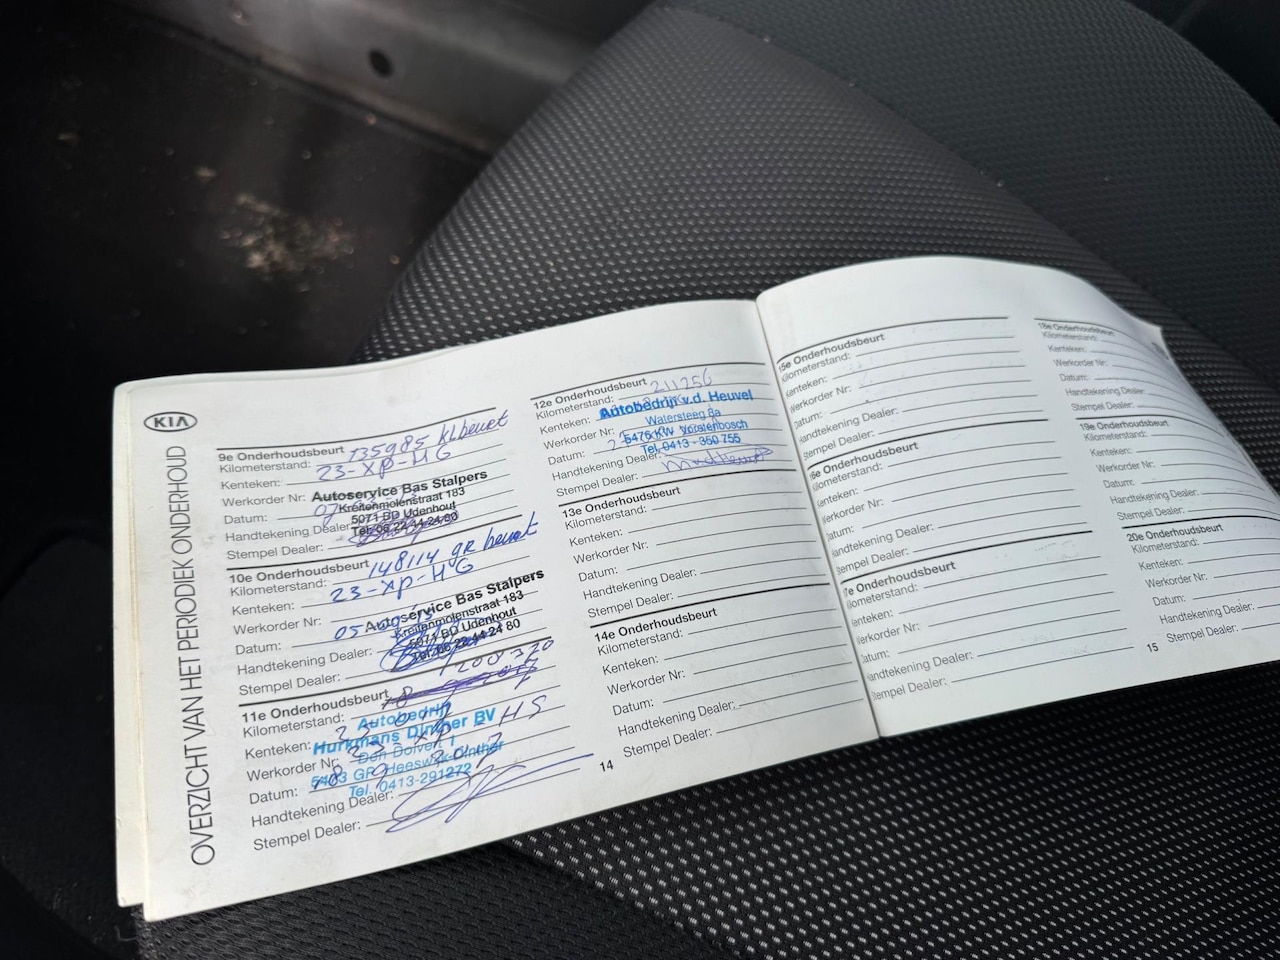 KIA
OVERZICHT VAN HET PERIODIEK ONDERHOUD
9e Onderhoudsbeurt
Kilometerstand: 135985 kl beurt
Kenteken: 23-XP-HG
Werkorder Nr:
Autoservice Bas Stalpers
Kreitenmolenstraat 183
5071 BD Udenhout
Tel. 06 22 44 24 80
Datum: 07
Handtekening Dealer:
Stempel Dealer:
10e Onderhoudsbeurt
Kilometerstand: 148114 gR beurt
Kenteken: 23-XP-HG
Werkorder Nr:
Autoservice Bas Stalpers
Kreitenmolenstraat 183
5071 BD Udenhout
Tel. 06 22 44 24 80
Datum: 05
Handtekening Dealer:
Stempel Dealer:
11e Onderhoudsbeurt
Kilometerstand:
Kenteken:
Autobedrijf
Hurkmans Dinther BV
Den Dolvert 1
5473 GP Heeswijk-Dinther
Tel. 0413-291272
Werkorder Nr:
Datum: 18 9
Handtekening Dealer:
Stempel Dealer:
12e Onderhoudsbeurt
Kilometerstand: 211256
Kenteken:
Autobedrijf v.d. Heuvel
Watersteeg 8a
5476 KW Vorstenbosch
Tel. 0413 - 350 755
Werkorder Nr:
Datum:
Handtekening Dealer:
Stempel Dealer:
13e Onderhoudsbeurt
Kilometerstand:
Kenteken:
Werkorder Nr:
Datum:
Handtekening Dealer:
Stempel Dealer:
14e Onderhoudsbeurt
Kilometerstand:
Kenteken:
Werkorder Nr:
Datum:
Handtekening Dealer:
Stempel Dealer:
14
5e Onderhoudsbeurt
Kilometerstand:
Kenteken:
Werkorder Nr:
Datum:
Handtekening Dealer:
Stempel Dealer:
6e Onderhoudsbeurt
ilometerstand:
enteken:
erkorder Nr:
atum:
andtekening Dealer:
empel Dealer:
7e Onderhoudsbeurt
lometerstand:
enteken:
erkorder Nr:
atum:
andtekening Dealer:
tempel Dealer:
18e Onderhoudsbeurt
Kilometerstand:
Kenteken:
Werkorder Nr:
Datum:
Handtekening Dealer:
Stempel Dealer:
19e Onderhoudsbeurt
Kilometerstand:
Kenteken:
Werkorder Nr:
Datum:
Handtekening Dealer:
Stempel Dealer:
20e Onderhoudsbeurt
Kilometerstand:
Kenteken:
Werkorder Nr:
Datum:
Handtekening Dealer:
Stempel Dealer:
15